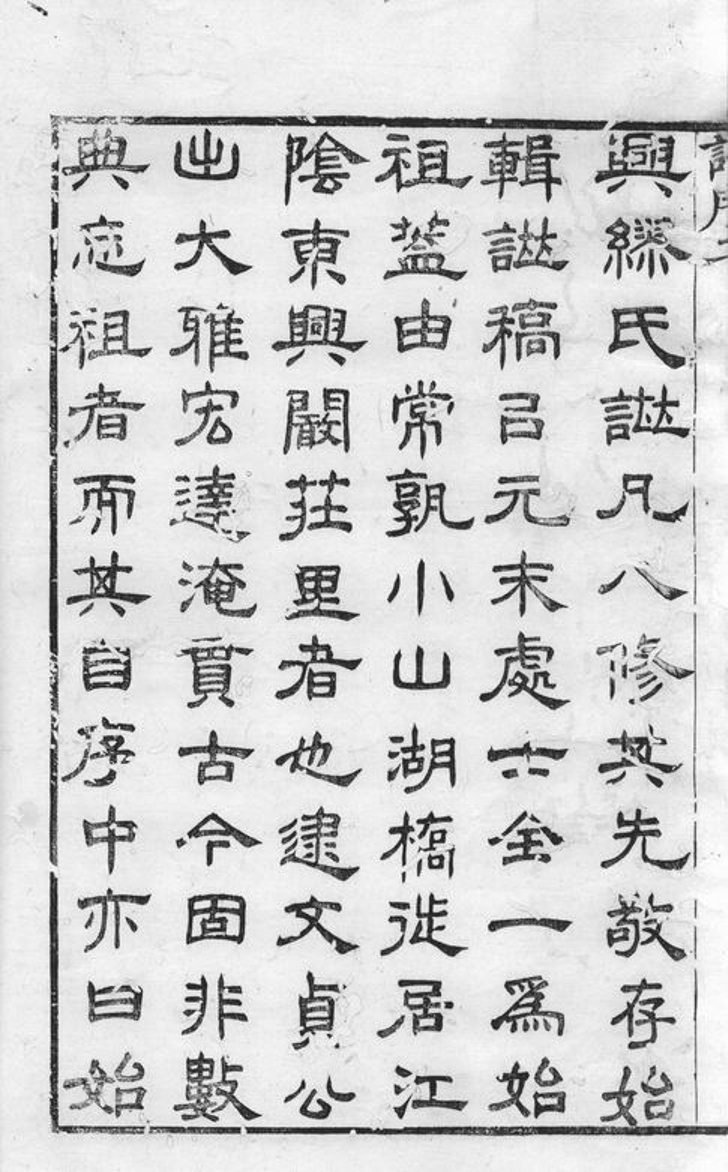 興繆氏譜凡八修其先敬存始
輯譜稿㠯元末處士全一為始
祖蓋由常孰小山湖橋徙居江
陰東興嚴莊里者也逮文貞公
出大雅宏達淹貫古今固非數
典忘祖者而其自序中亦曰始